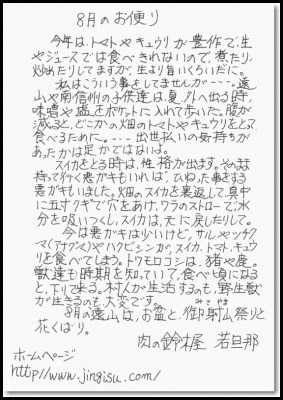 8月のお便り
今年は、トマトやキュウリが豊作で、生
やジュースでは食べきれないので、煮たり、
炒めたりしてますが、生より旨いくらいだに。
私はこういう事をしてませんが・・・。遠
山や南信州の子供達は、夏、外へ出る時、
味噌や塩をポケットに入れて歩いた。腹が
減ると、どこかの畑のトマトやキュウリをとって
食べるために。・・・出世払いの気持ちが
あったかは定かではないほ。
スイカをとる時は、性格が出ます。そのまま
持って行く悪ガキもいれば、ひねった事をする
悪ガキもいました。畑のスイカを裏返して、真中
に五寸クギで穴をあけ、ワラのストローで、水
分を吸いつくし、スイカは、元に戻したりして。
今は悪ガキは少いけど、サルやッチク
マ(アナグマ)やハクビシンが、スイカ、トマト、キュウ
リを食べてしまう。トウモロコシは、猪や鹿。
獣達も時期を知っていて、食べ頃になる
と、下りて来る。村人が生活するのも、野生獣
が生きるのも、大変です。
8月の遠山は、お盆と、御射山祭りと
みさやま
花くばり。
肉の鈴木屋 若旦那
ホームページ
http://www.jingisu.com/